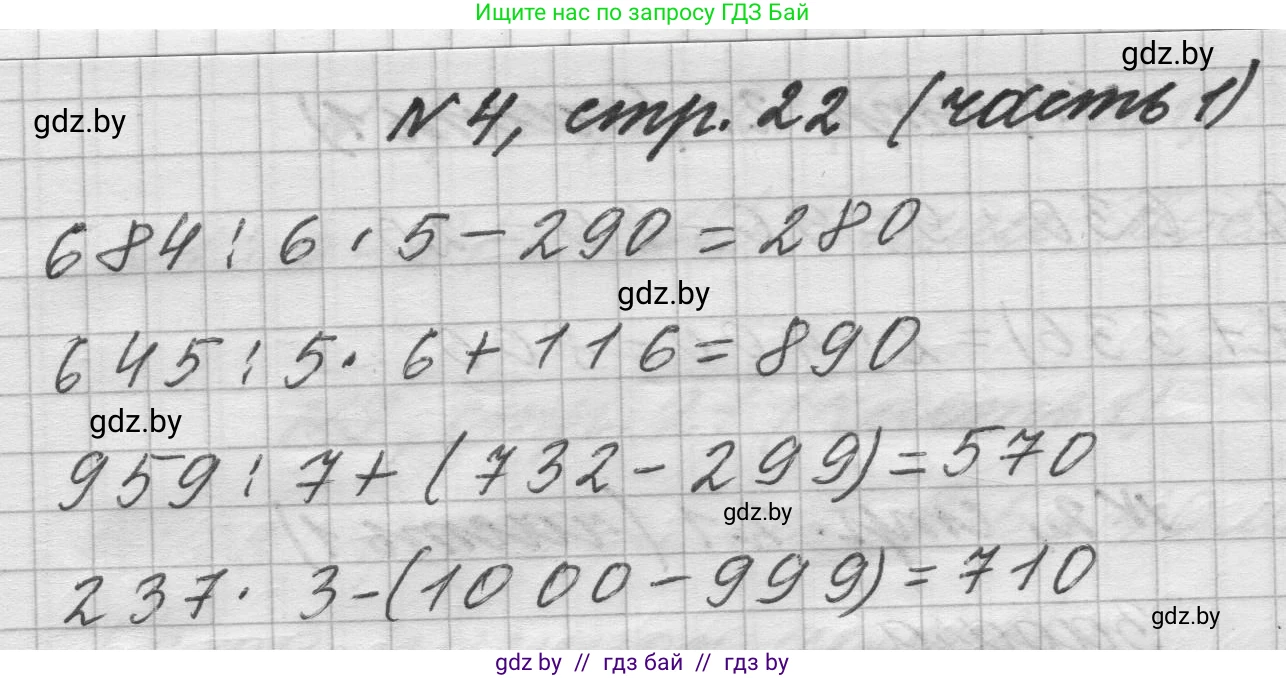 Ищите нас по запросу ГДЗ Бай
gdz.by
gdz.by
N 4, стр. 22 (часть 1)
684 : 6 · 5 - 290 = 280
gdz.by
645 : 5 · 6 + 116 = 890
gdz.by
959 : 7 + (732 - 299) = 570
gdz.by
237 · 3 - (1000 - 999) = 710
gdz.by
gdz by // гдз бай // гдз by